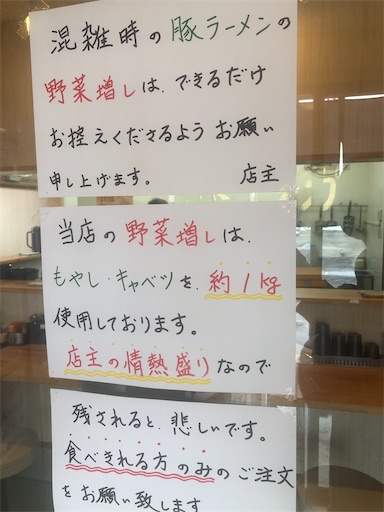 混雑時の豚ラーメンの
野菜増しは、できるだけ
お控えくださるようお願い
申し上げます。 店主
当店の野菜増しは、
もやし・キャベツを、約1kg
使用しております。
店主の情熱盛りなので
残されると、悲しいです。
食べきれる方のみのご注文
をお願い致します